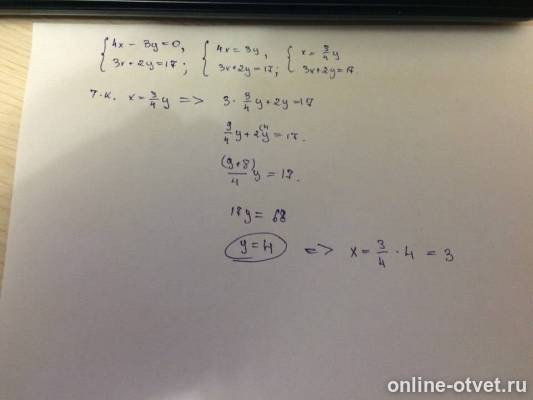 {4x - 3y = 0, {4x = 3y, {x = 3/4 y
{3x + 2y = 17; {3x + 2y = 17; {3x + 2y = 17.
т.к. x = 3/4 y => 3 · 3/4 y + 2y = 17
9/4 y + 2y (4 = 17.
(9+8)/4 y = 17.
17y = 68
y = 4 => x = 3/4 · 4 = 3
online-otvet.ru